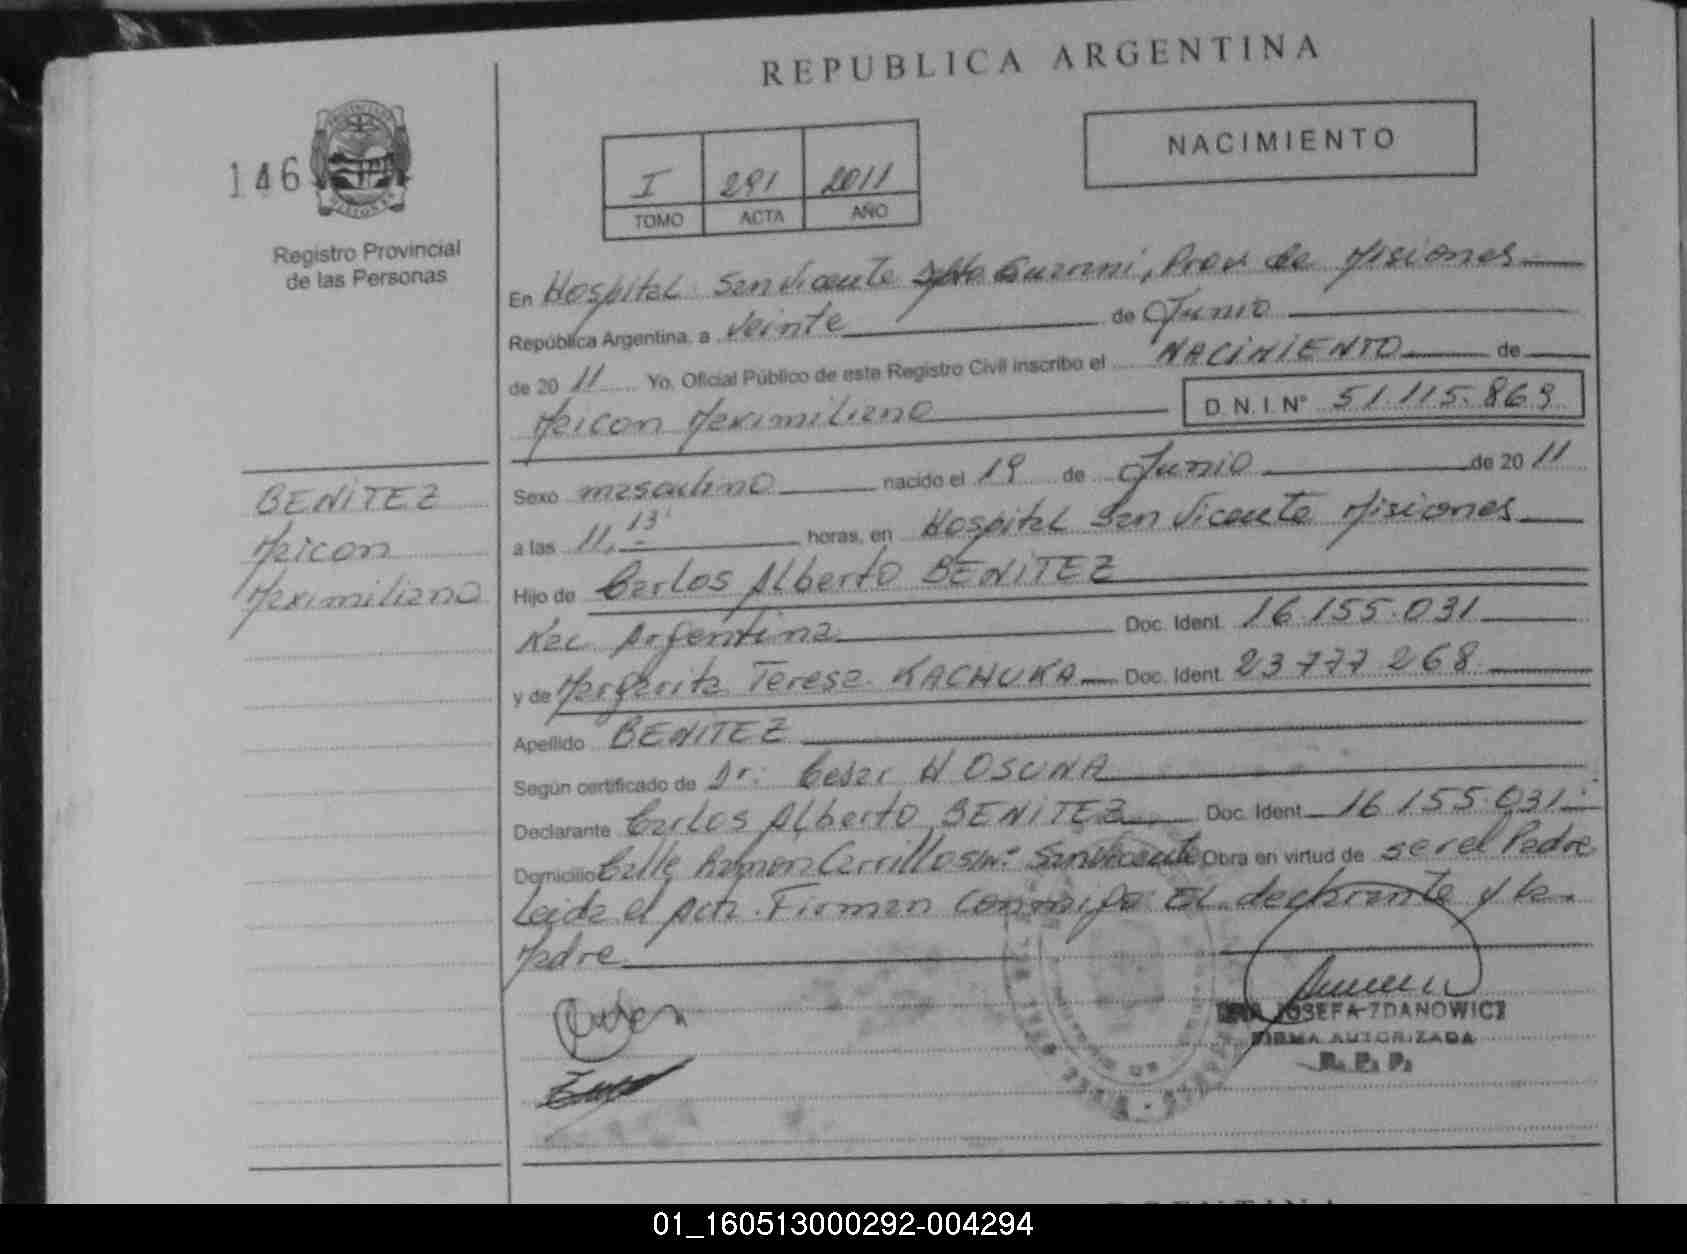 REPUBLICA ARGENTINA
146
Registro Provincial
de las Personas
I 291 2011
TOMO ACTA AÑO
NACIMIENTO
En Hospital San Vicente Dpto Guarani, Prov de Misiones
República Argentina, a veinte de Junio
de 20 11 Yo, Oficial Público de este Registro Civil inscribo el NACIMIENTO de
Maicon Maximiliano D.N.I. N° 51.115.869
BENITEZ
Maicon
Maximiliano
Sexo masculino nacido el 19 de Junio de 20 11
a las 11,13 horas, en Hospital San Vicente Misiones
Hijo de Carlos Alberto BENITEZ
Nac. Argentina Doc. Ident. 16.155.031
y de Margarita Teresa KACHUKA Doc. Ident. 23 777 268
Apellido BENITEZ
Según certificado de Dr. Cesar H OSUNA
Declarante Carlos Alberto BENITEZ Doc. Ident. 16.155.031
Domicilio Calle Ramon Carrillo s/n° San Vicente Obra en virtud de ser el Padre
Leida el Acta. Firman conmigo EL declarante y la
Madre
JOSEFA ZDANOWICZ
FIRMA AUTORIZADA
R. P. P.
01_160513000292-004294